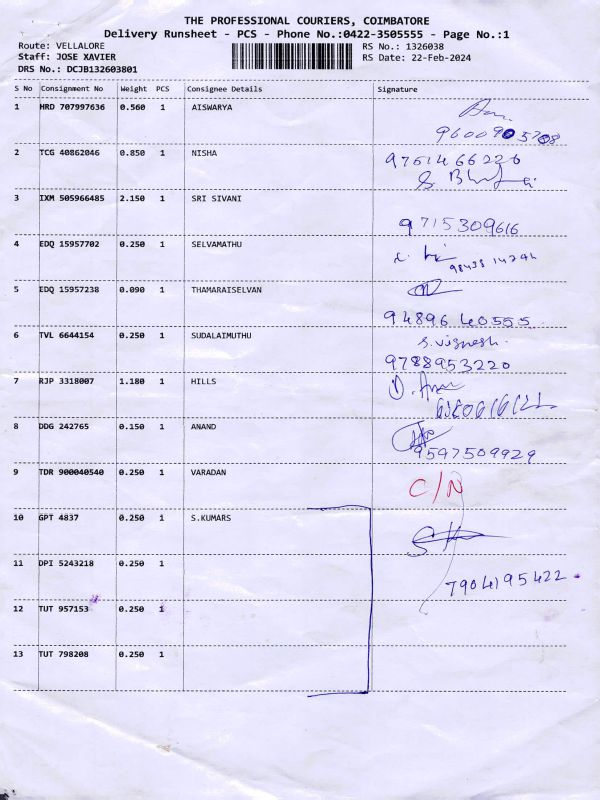 THE PROFESSIONAL COURIERS, COIMBATORE
Delivery Runsheet - PCS - Phone No.:0422-3505555 - Page No.:1
Route: VELLALORE RS No.: 1326038
Staff: JOSE XAVIER RS Date: 22-Feb-2024
DRS No.: DCJB132603801
S No Consignment No Weight PCS Consignee Details Signature
1 HRD 707997636 0.560 1 AISWARYA
2 TCG 40862046 0.850 1 NISHA 9751466226
3 IXM 505966485 2.150 1 SRI SIVANI
9715309616
4 EDQ 15957702 0.250 1 SELVAMATHU
5 EDQ 15957238 0.090 1 THAMARAISELVAN
94896 40555
6 TVL 6644154 0.250 1 SUDALAIMUTHU S. Vignesh
9788953220
7 RJP 3318007 1.180 1 HILLS
8 DDG 242765 0.150 1 ANAND
9597509929
9 TDR 900040540 0.250 1 VARADAN C/N
10 GPT 4837 0.250 1 S.KUMARS
11 DPI 5243218 0.250 1 7904195422
12 TUT 957153 0.250 1
13 TUT 798208 0.250 1